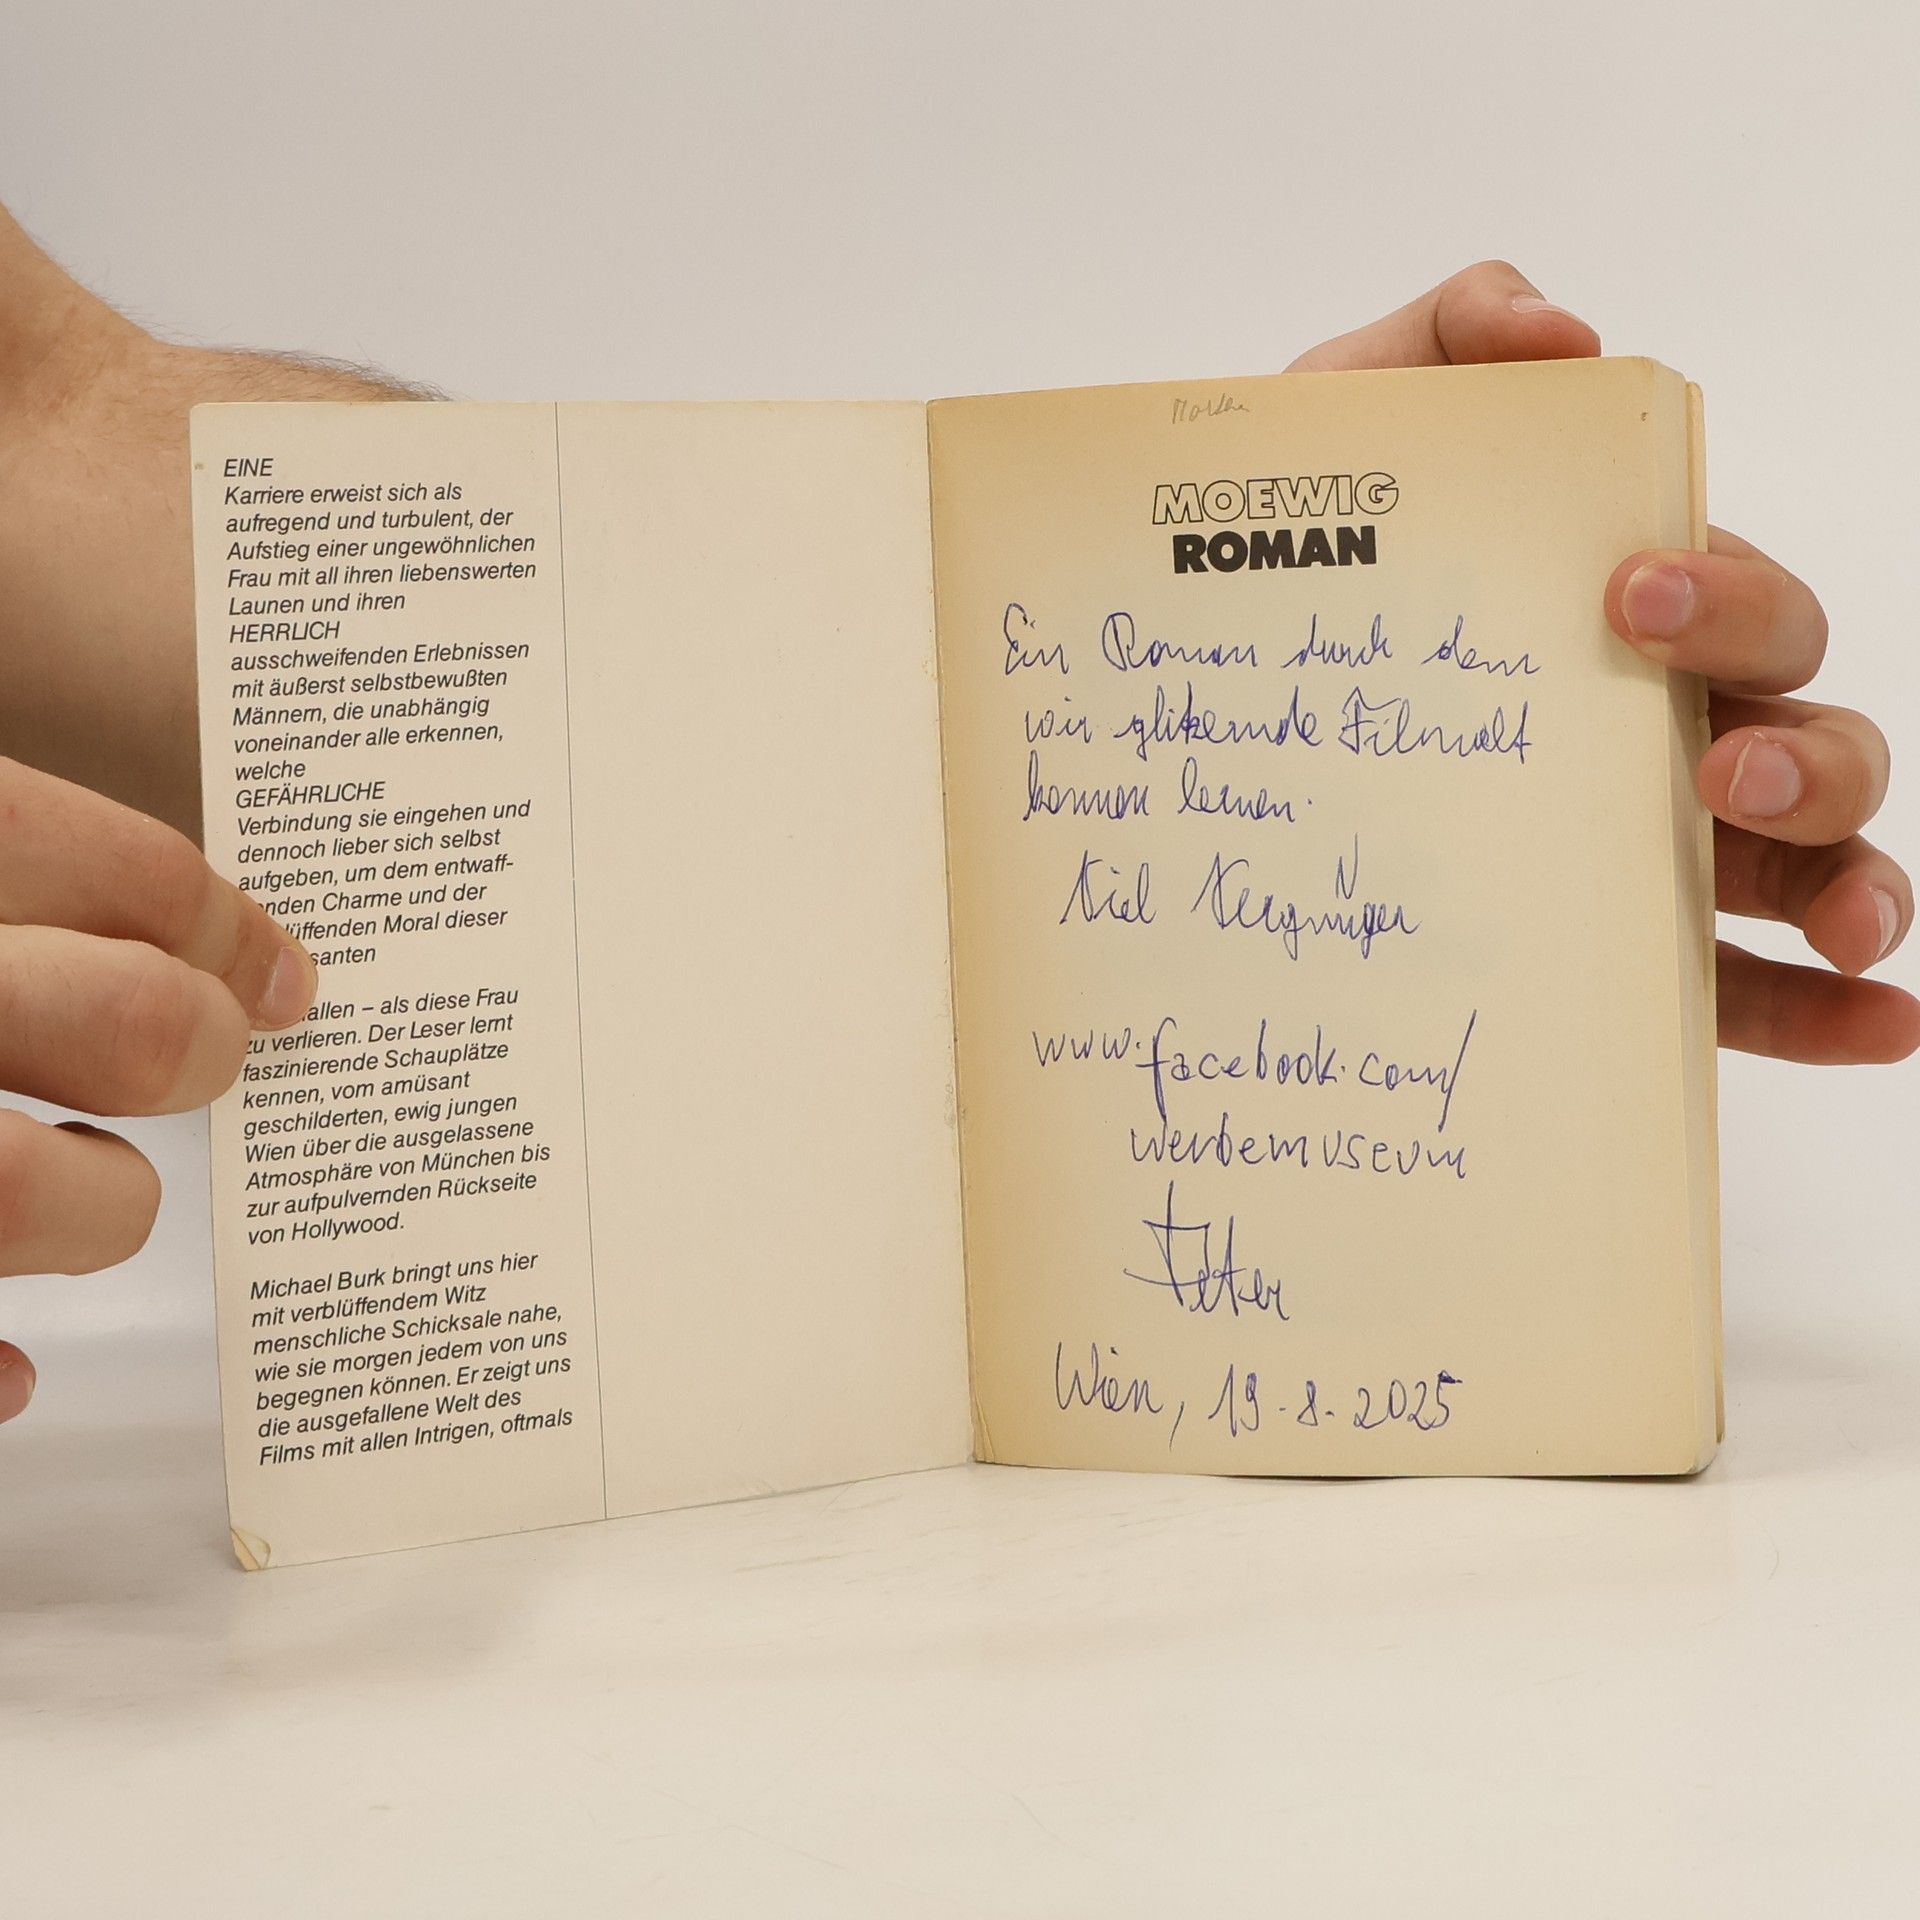 EINE
Karriere erweist sich als
aufregend und turbulent, der
Aufstieg einer ungewöhnlichen
Frau mit all ihren liebenswerten
Launen und ihren
HERRLICH
ausschweifenden Erlebnissen
mit äußerst selbstbewußten
Männern, die unabhängig
voneinander alle erkennen,
welche
GEFÄHRLICHE
Verbindung sie eingehen und
dennoch lieber sich selbst
aufgeben, um dem entwaff-
nden Charme und der
lüffenden Moral dieser
santen
allen – als diese Frau
zu verlieren. Der Leser lernt
faszinierende Schauplätze
kennen, vom amüsant
geschilderten, ewig jungen
Wien über die ausgelassene
Atmosphäre von München bis
zur aufpulvernden Rückseite
von Hollywood.
Michael Burk bringt uns hier
mit verblüffendem Witz
menschliche Schicksale nahe,
wie sie morgen jedem von uns
begegnen können. Er zeigt uns
die ausgefallene Welt des
Films mit allen Intrigen, oftmals
MOEWIG
ROMAN
Ein Roman durch dem
wir glitzernde Filmwelt
kennen lernen.
Viel Vergnügen
www.facebook.com/
werbemuseum
Peter
Wien, 19-8-2025